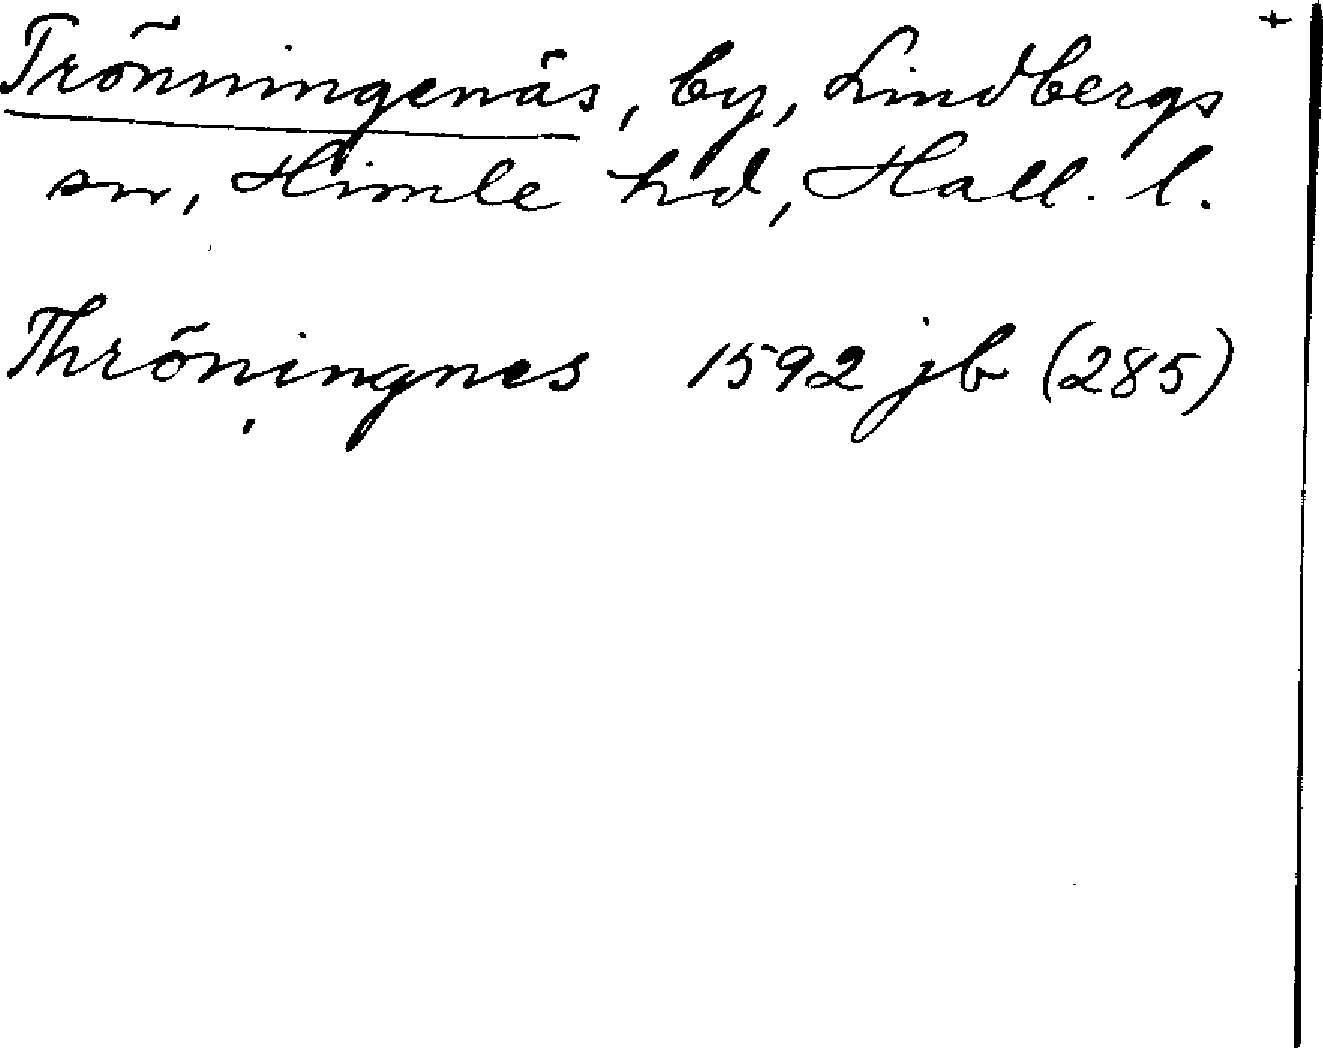 +
Trönningenäs, by, Lindbergs
sn, Himle hd, Hall. l.
Thröningnes 1592 jb (285)